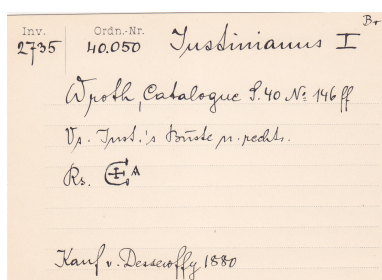 Br
Inv. Ordn.-Nr.
2735 40.050 Justinianus I
Wroth, Catalogue S. 40 No 146 ff
Vs. Just.'s Büste n. rechts.
Rs. A
Kauf v. Dessewffy 1880